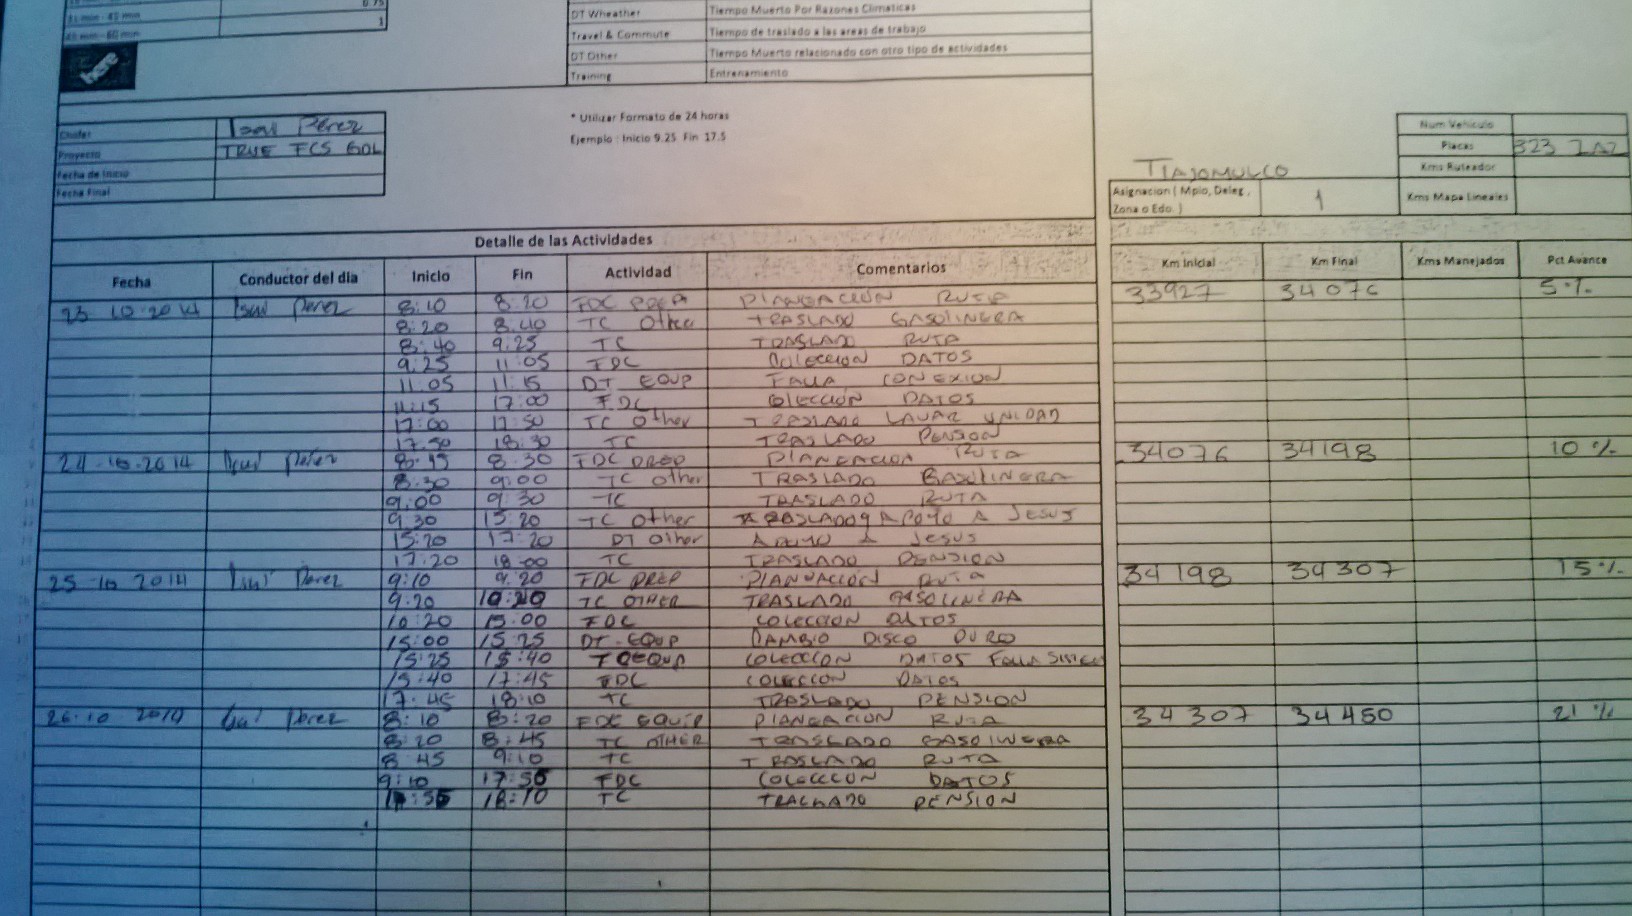 0.75
31 min - 45 min
1
45 min - 60 min
DT Wheather Tiempo Muerto Por Razones Climaticas
Travel & Commute Tiempo de traslado a las areas de trabajo
DT Other Tiempo Muerto relacionado con otro tipo de actividades
Training Entrenamiento
here
* Utilizar Formato de 24 horas
Ejemplo : Inicio 9.25 Fin 17.5
Chofer Isai Pérez
Proyecto TRUE FCS GDL
Fecha de Inicio
Fecha Final
Num Vehiculo
Placas 323
Kms Ruteador
Kms Mapa Lineales
TLAJOMULCO
Asignacion ( Mpio, Deleg,
Zona o Edo ) 1
Detalle de las Actividades
Fecha Conductor del dia Inicio Fin Actividad Comentarios Km Inicial Km Final Kms Manejados Pct Avance
23 10.2014 Isai Perez 8:10 8:20 FDC PREP PLANEACIÓN RUTA 33927 34076 5%
8:20 8:40 TC Other TRASLADO GASOLINERA
8:40 9:25 TC TRASLADO RUTA
9:25 11:05 FDC Coleccion DATOS
11:05 11:15 DT EQUP FALLA CONEXION
11:15 17:00 FDC COLECCION DATOS
17:00 17:50 TC Other TRASLADO LAVAR UNIDAD
17:50 18:30 TC TRASLADO PENSION
24-10-2014 Isai Perez 8:15 8:30 FDC PREP PLANEACION RUTA 34076 34198 10%
8:30 9:00 TC other TRASLADO GASOLINERA
9:00 9:30 TC TRASLADO RUTA
9:30 15:20 TC Other TRASLADO APOYO A JESUS
15:20 17:20 DT Other APOYO A Jesus
17:20 18:00 TC TRASLADO PENSION
25 10 2014 Isai Perez 9:10 9:20 FDC PREP PLANEACIÓN RUTA 34198 34307 15%
9:20 10:20 TC OTHER TRASLADO GASOLINERA
10:20 15:00 FDC COLECCION DATOS
15:00 15:25 DT-EQUP CAMBIO DISCO DURO
15:25 15:40 EQUP COLECCION DATOS Falla
15:40 17:45 FDC COLECCION DATOS
17:45 18:10 TC TRASLADO PENSION
26.10 2014 Isai Perez 8:10 8:20 FDC EQUIP PLANEACION RUTA 34307 34450 21%
8:20 8:45 TC OTHER TRASLADO GASOLINERA
8:45 9:10 TC TRASLADO RUTA
9:10 17:55 FDC COLECCION DATOS
17:55 18:10 TC TRASLADO PENSION